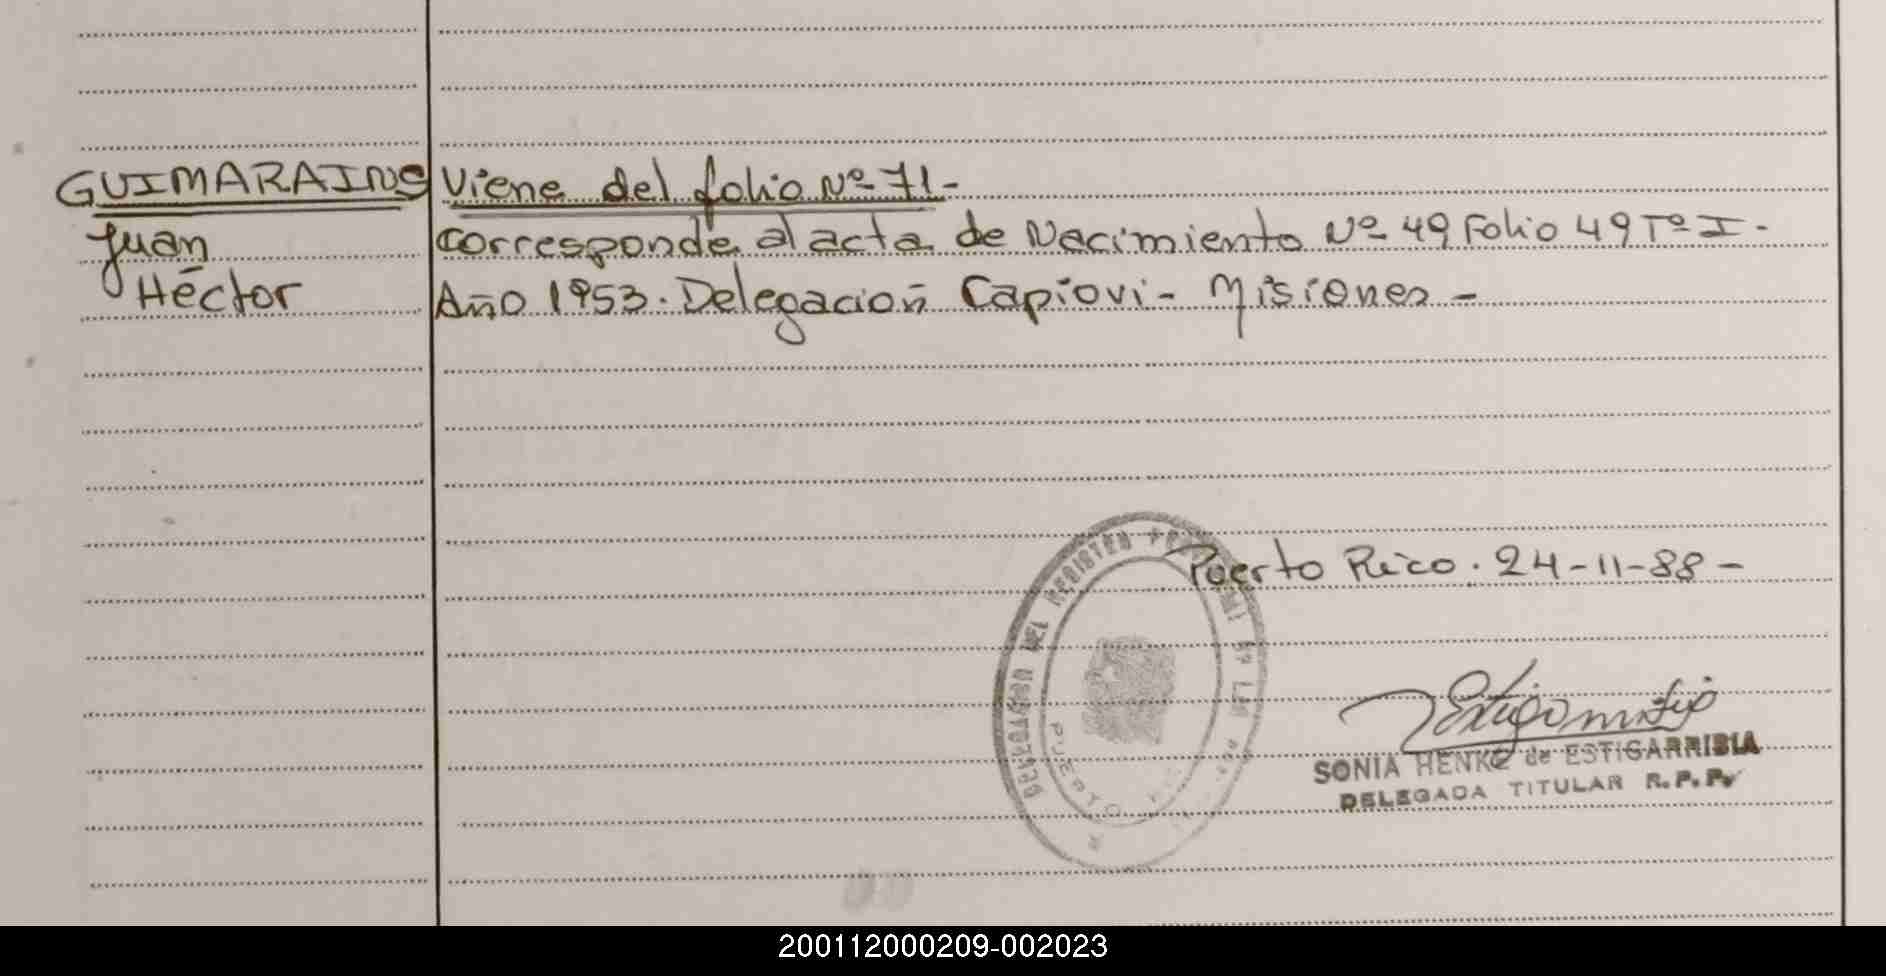 GUIMARAINS
Juan
Héctor
Viene del folio Nº 71-
corresponde al acta de Nacimiento Nº 49 Folio 49 Tº I-
Año 1953. Delegación Capiovi- Misiones-
Puerto Rico. 24-11-88-
DELEGACION DEL REGISTRO
PUERTO
SONIA HENKE de ESTIGARRIBIA
DELEGADA TITULAR R.P.P.
200112000209-002023